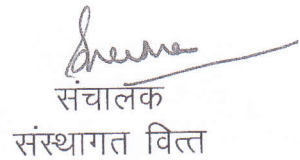 संचालक
संस्थागत वित्त